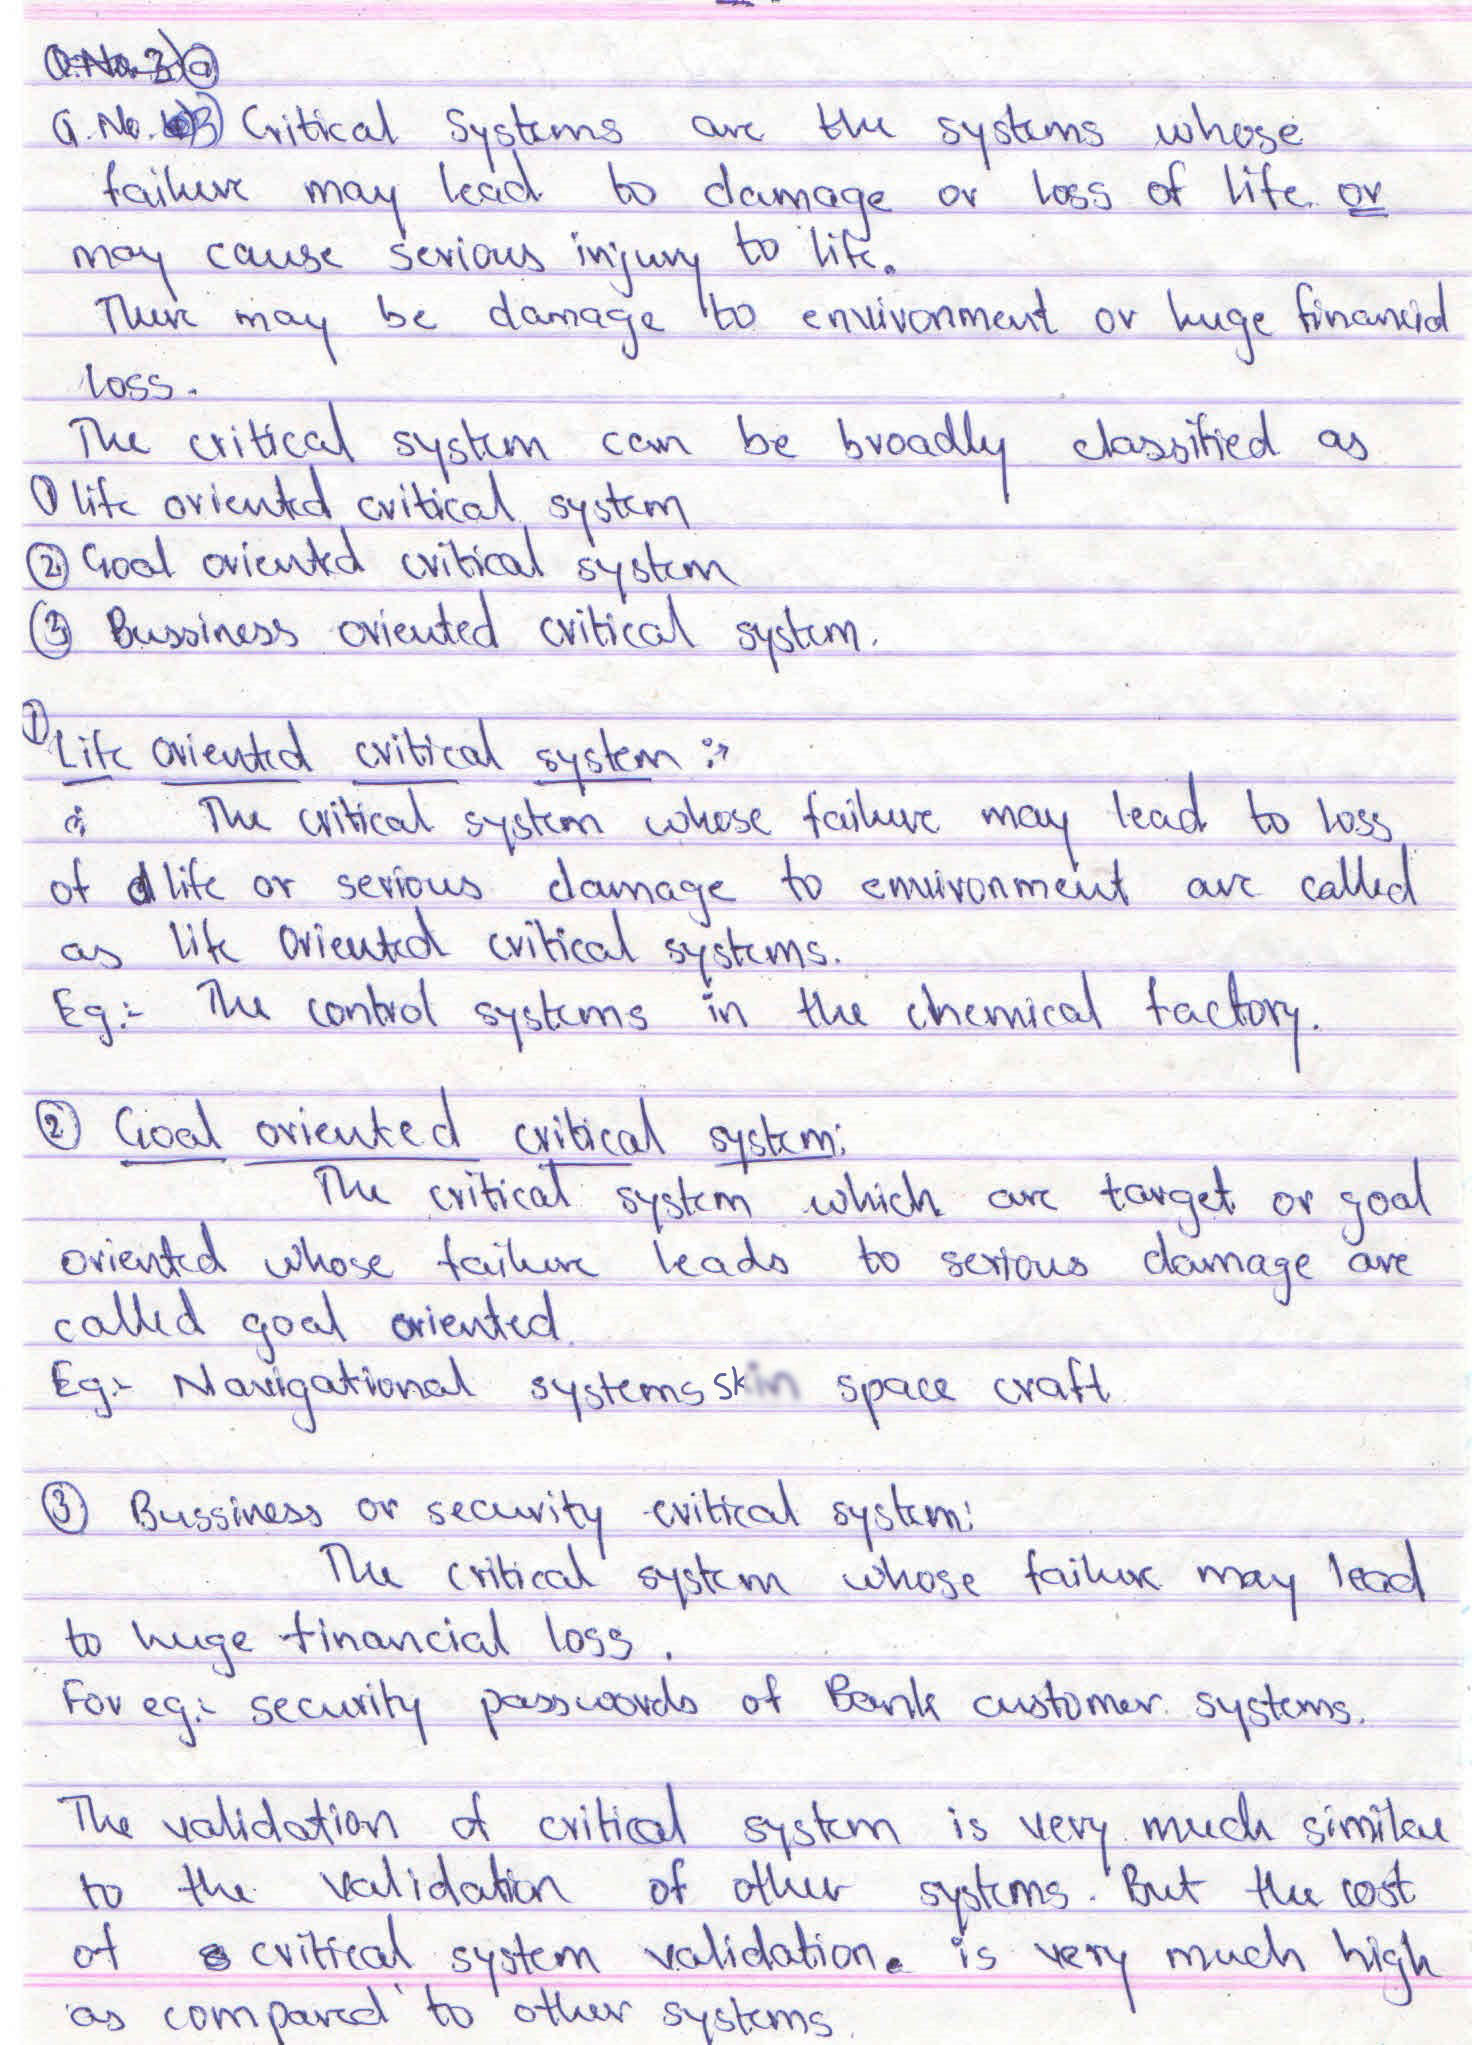 Q.No.3) a
Q.No. 3) Critical Systems are the systems whose
failure may lead to damage or loss of life or
may cause serious injury to life.
There may be damage to environment or huge financial
loss.
The critical system can be broadly classified as
① life oriented critical system
② Goal oriented critical system
③ Bussiness oriented critical system.
① Life oriented critical system :→
The critical system whose failure may lead to loss
of life or serious damage to environment are called
as life oriented critical systems.
Eg:- The control systems in the chemical factory.
② Goal oriented critical system:
The critical system which are target or goal
oriented whose failure leads to serious damage are
called goal oriented.
Eg:- Navigational systems in space craft
③ Bussiness or security critical system:
The critical system whose failure may lead
to huge financial loss.
For eg:- security passwords of Bank customer systems.
The validation of critical system is very much similar
to the validation of other systems. But the cost
of critical system validation. is very much high
as compared to other systems.